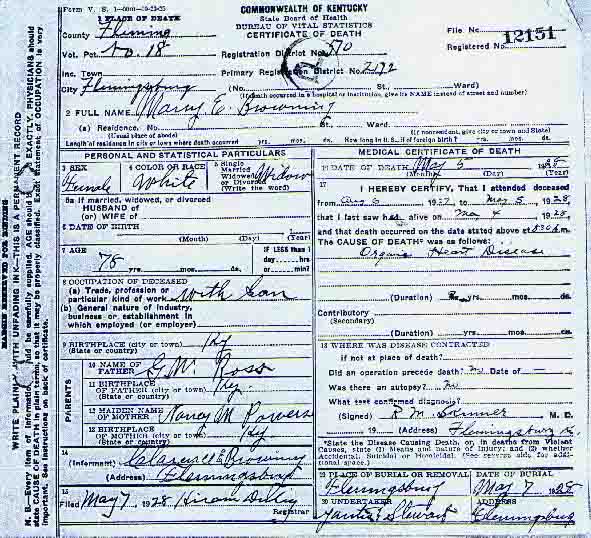 Form V. S.
1 PLACE OF DEATH
COMMONWEALTH OF KENTUCKY
State Board of Health
BUREAU OF VITAL STATISTICS
CERTIFICATE OF DEATH
File No. 12151
County Fleming
Vot. Pct. No. 18
Registration District No. 570
Registered No.
Inc. Town
Primary Registration District No. 2192
City Flemingsburg (No. St., Ward)
(If death occurred in a hospital or institution, give its NAME instead of street and number)
2 FULL NAME Mary E. Browning
(a) Residence. No. St. Ward.
(Usual place of abode) (If nonresident, give city or town and State)
Length of residence in city or town where death occurred yrs. mos. ds. How long in U. S., if of foreign birth? yrs. mos. ds.
PERSONAL AND STATISTICAL PARTICULARS
3 SEX Female
4 COLOR OR RACE White
5 Single Married Widowed or Divorced (Write the word) Widow
5a If married, widowed, or divorced
HUSBAND of
(or) WIFE of
6 DATE OF BIRTH 1
(Month) (Day) (Year)
7 AGE 78 yrs. mos. ds.
If LESS than 1 day hrs. or min?
8 OCCUPATION OF DECEASED
(a) Trade, profession or particular kind of work With Son
(b) General nature of Industry, business or establishment in which employed (or employer)
9 BIRTHPLACE (city or town) Ky
(State or country)
PARENTS
10 NAME OF FATHER G. M. Ross
11 BIRTHPLACE OF FATHER (city or town) Ky.
(State or country)
12 MAIDEN NAME OF MOTHER Nancy M Powers
13 BIRTHPLACE OF MOTHER (city or town) Ky
(State or country)
14
(Informant) Clarence E Browning
(Address) Flemingsburg
15
Filed May 7, 1928 Hiram
Registrar
MEDICAL CERTIFICATE OF DEATH
16 DATE OF DEATH May 5 1928
(Month) (Day) (Year)
17 I HEREBY CERTIFY, That I attended deceased
from Aug 6 1927, to May 5, 1928,
that I last saw her alive on May 4 1928,
and that death occurred on the date stated above at 830 A m.
The CAUSE OF DEATH* was as follows:
Organic Heart Disease
(Duration) yrs. mos. ds.
Contributory
(Secondary)
(Duration) yrs. mos. ds.
18 WHERE WAS DISEASE CONTRACTED
if not at place of death?
Did an operation precede death? No Date of —
Was there an autopsy? No
What test confirmed diagnosis?
(Signed) R. M. Skinner M. D.
19 (Address) Flemingsburg K.
*State the Disease Causing Death, or, in deaths from Violent Causes, state (1) Means and nature of Injury; and (2) whether Accidental, Suicidal or Homicidal. (See reverse side for additional space.)
19 PLACE OF BURIAL OR REMOVAL Flemingsburg
DATE OF BURIAL May 7 1928
20 UNDERTAKER Stewart
ADDRESS Flemingsburg
MARGIN RESERVED FOR BINDING
WRITE PLAINLY WITH UNFADING INK—THIS IS A PERMANENT RECORD
N. B.—Every item of information should be carefully supplied. AGE should be stated EXACTLY. PHYSICIANS should
state CAUSE OF DEATH in plain terms, so that it may be properly classified. Exact statement of OCCUPATION is very
important. See instructions on back of certificate.